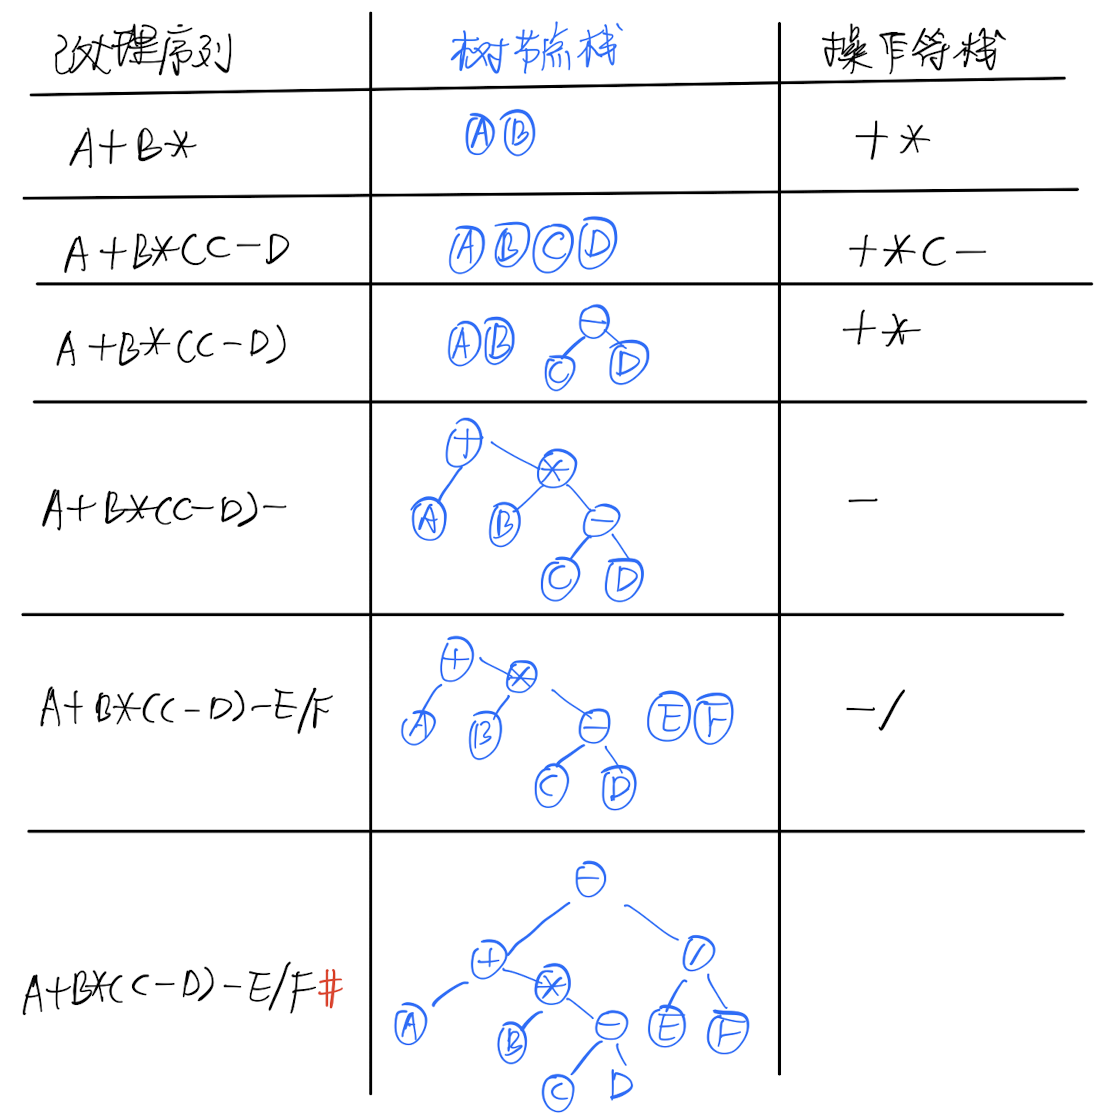 已处理序列 树节点栈 操作符栈
A+B* A B +*
A+B*(C-D A B C D +*(-
A+B*(C-D) A B - +*
C D
A+B*(C-D)- + -
*
A B -
C D
A+B*(C-D)-E/F + * E F -/
A B -
C D
-
A+B*(C-D)-E/F# + /
*
A B - E F
C D